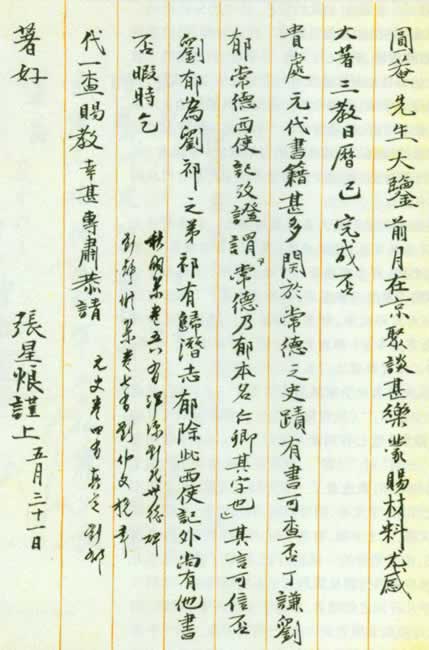 圓菴先生大鑒 前月在京聚談甚樂蒙賜材料尤感
大著三教日曆已完成否
貴處元代書籍甚多関於常德之史蹟有書可查否丁謙劉
郁常德西使記攷證謂「常德乃郁本名仁卿其字也」其言可信否
劉郁為劉祁之弟祁有歸潛志郁除此西使記外尚有他書
否暇時乞
秋澗集卷五八有渾源劉氏世德碑
劉靜修集卷七有劉仲文
代一查賜教幸甚專肅恭請
元史卷四有真定劉郁
著好
張星烺謹上 五月三十一日